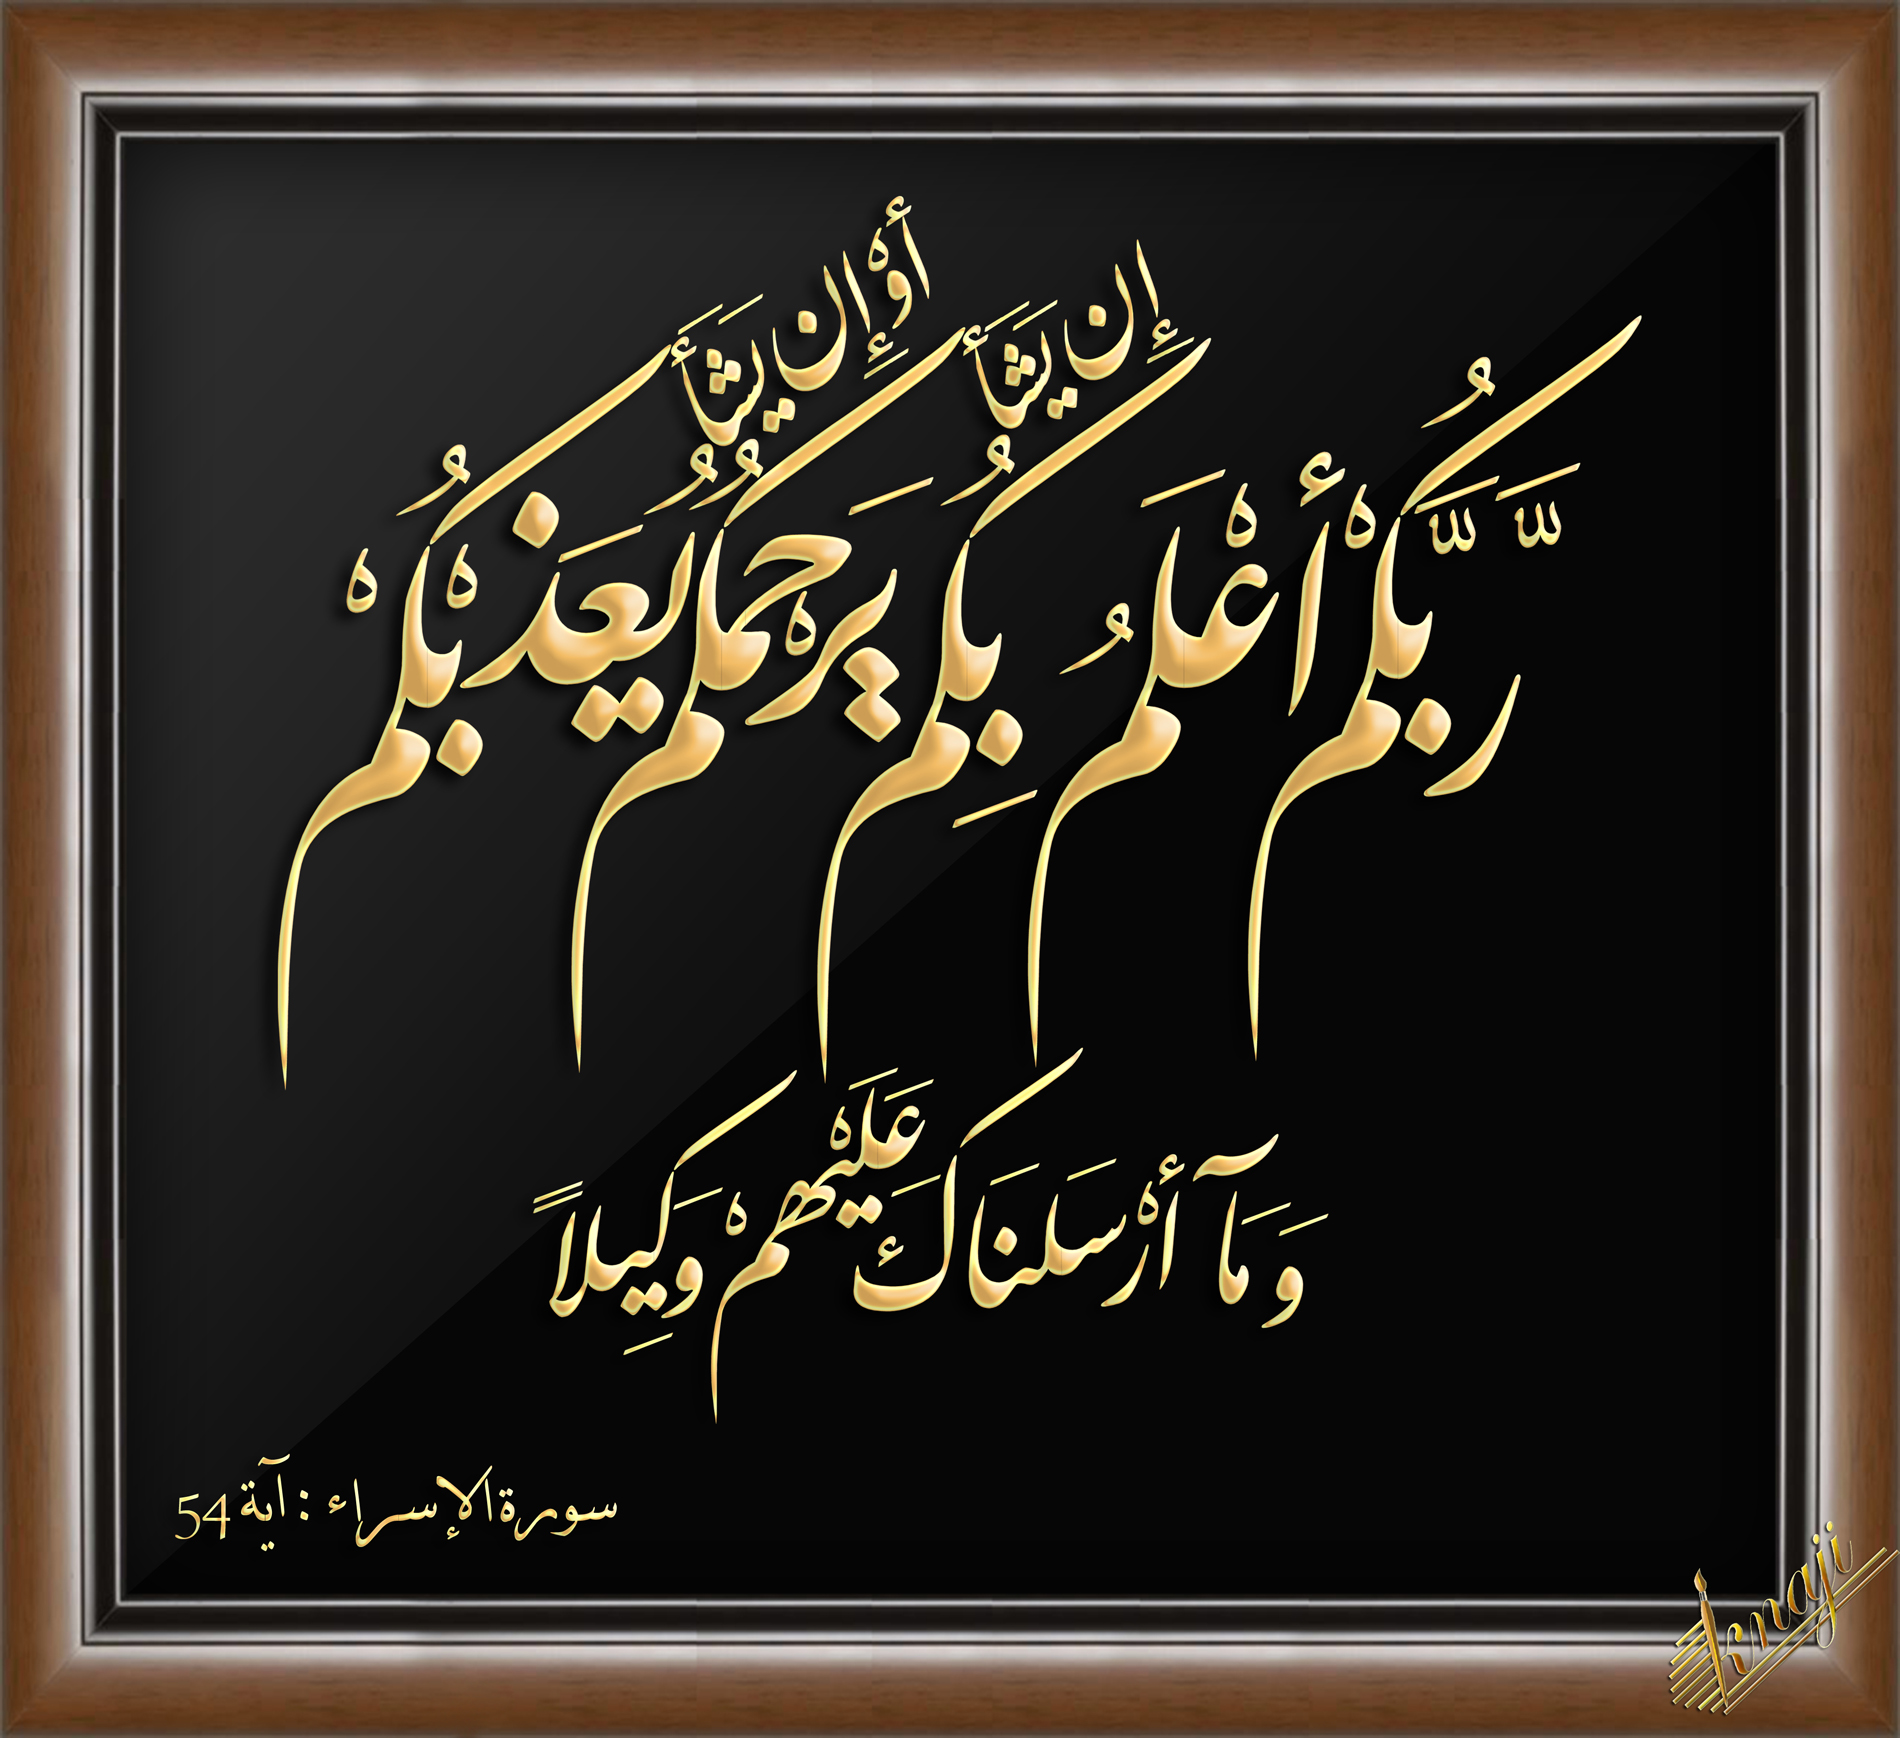 رَّبُّكُمْ أَعْلَمُ بِكُمْ إِن يَشَأْ يَرْحَمْكُمْ أَوْ إِن يَشَأْ يُعَذِّبْكُمْ
وَمَآ أَرْسَلْنَاكَ عَلَيْهِمْ وَكِيلاً
سورة الإسراء : آية 54
knaji